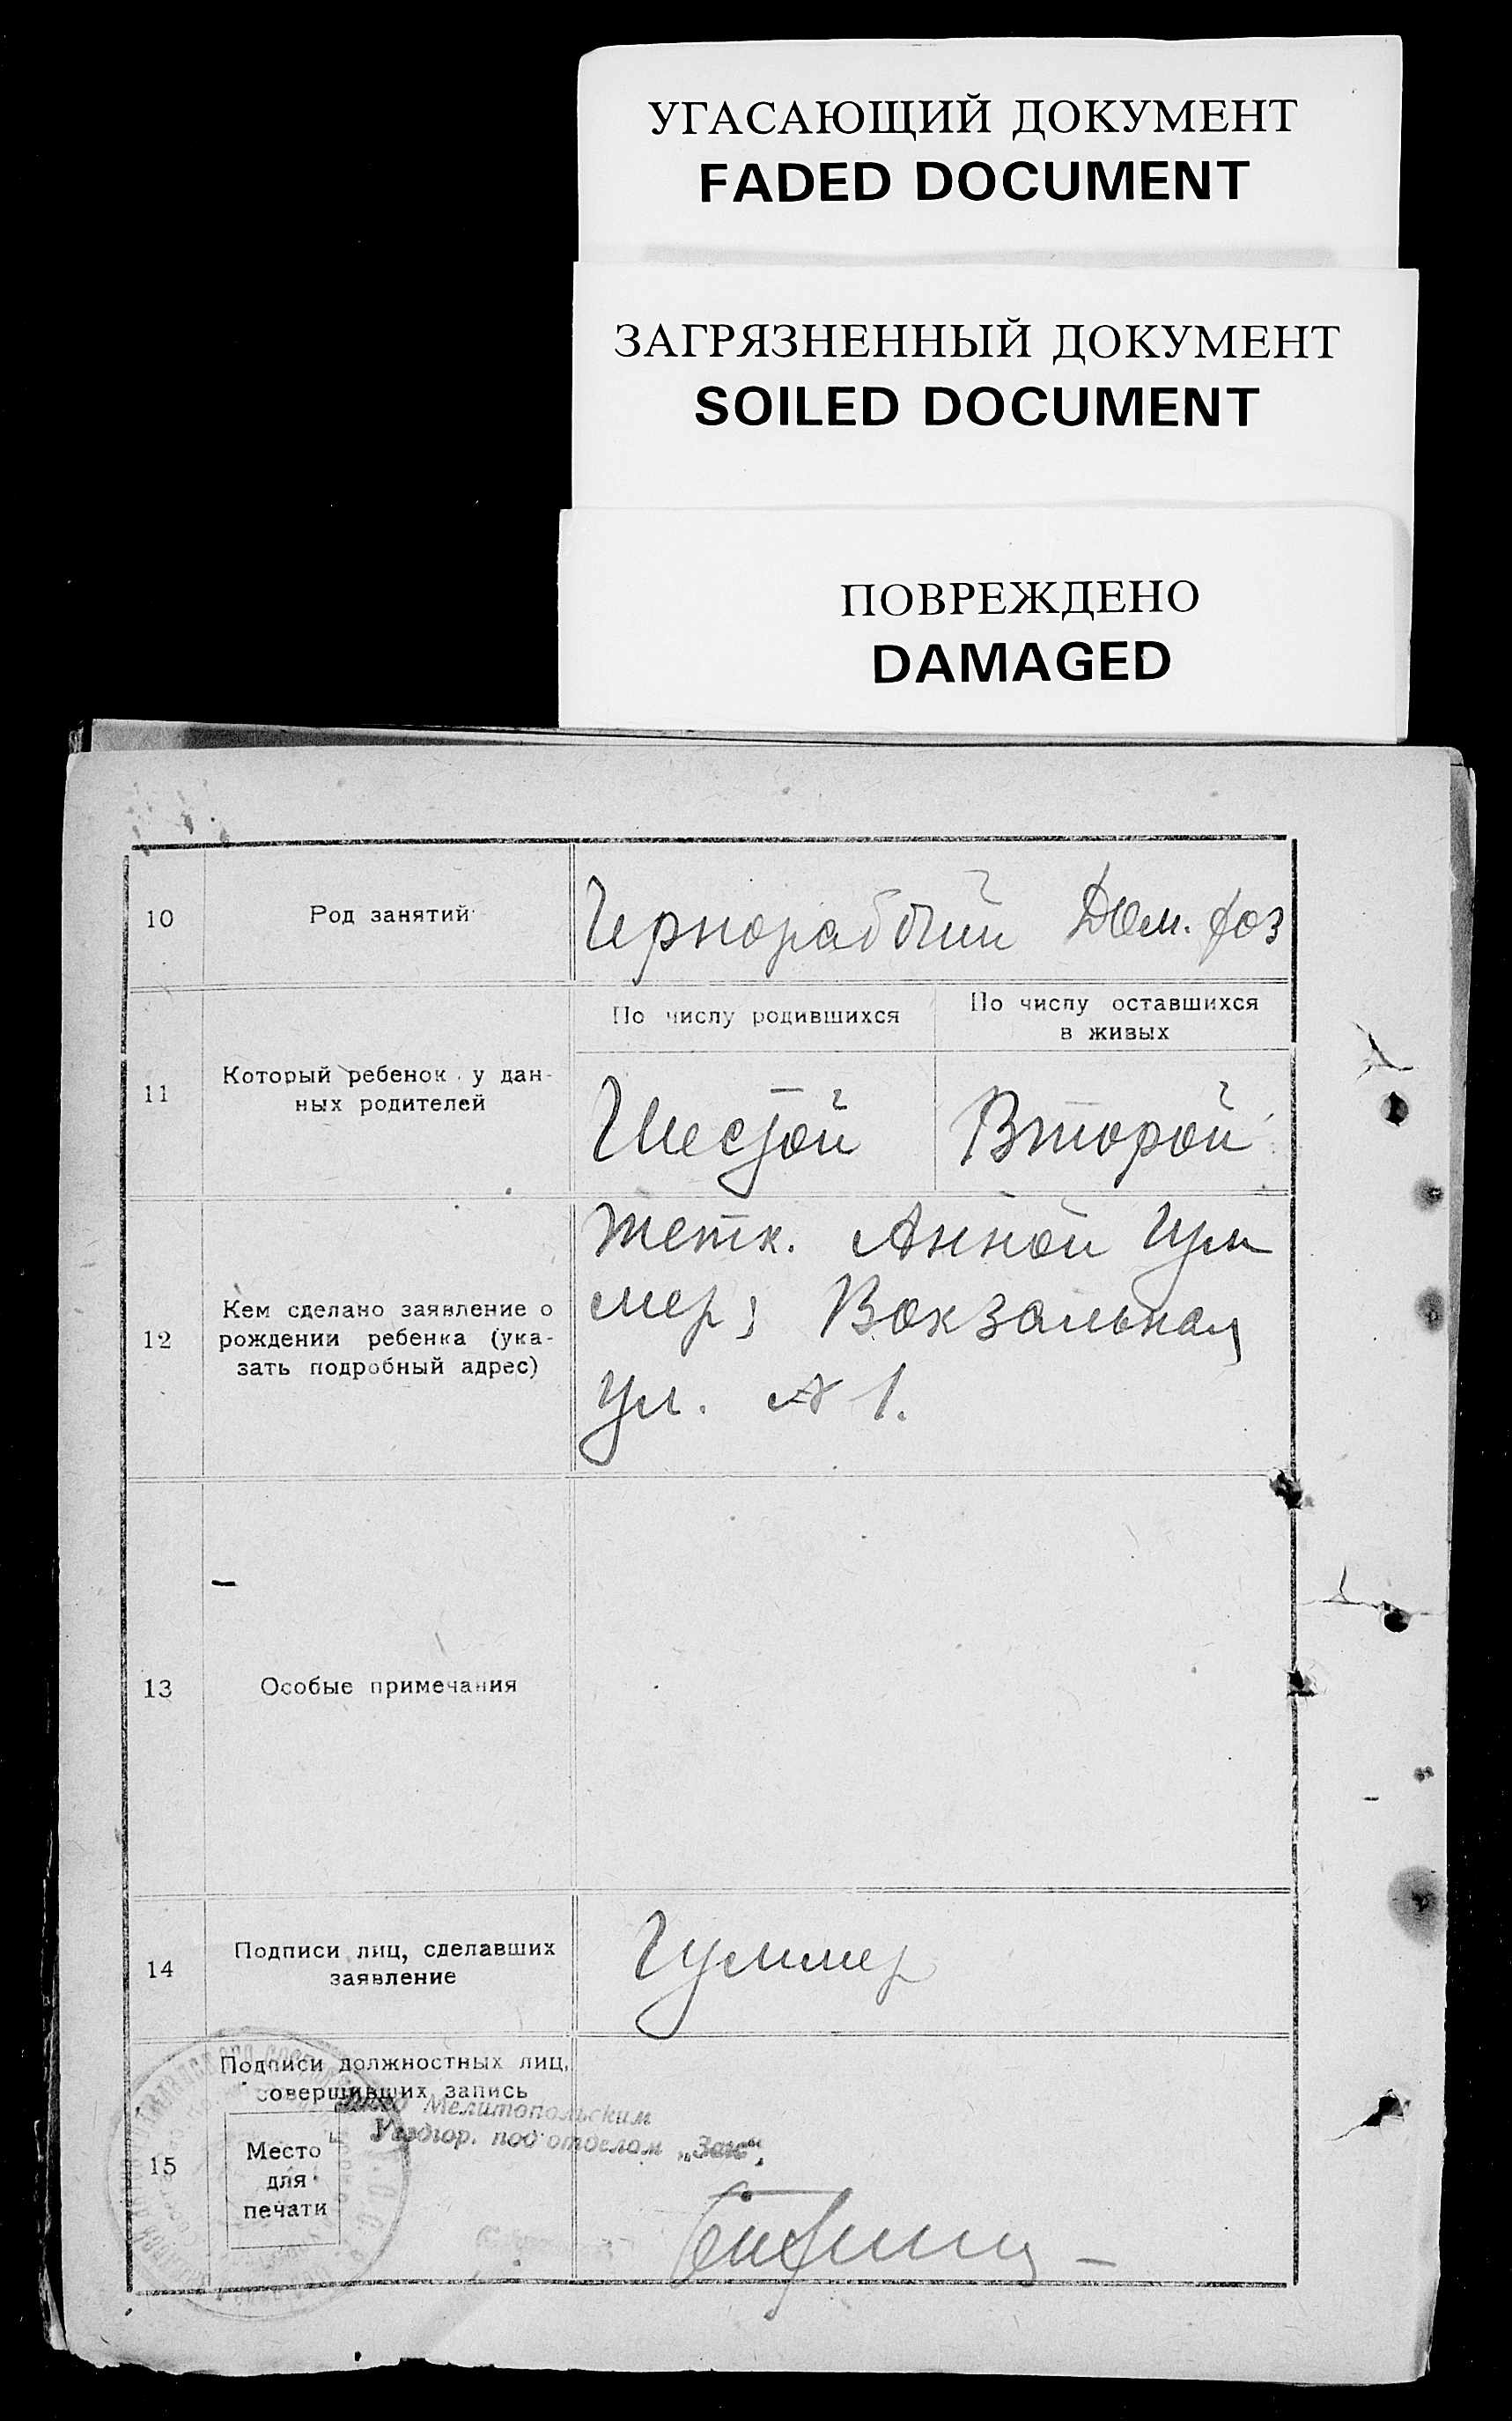 УГАСАЮЩИЙ ДОКУМЕНТ
FADED DOCUMENT
ЗАГРЯЗНЕННЫЙ ДОКУМЕНТ
SOILED DOCUMENT
ПОВРЕЖДЕНО
DAMAGED
10 Род занятий Чернорабочий Дом. хоз
11 Который ребенок у дан-
ных родителей
По числу родившихся
По числу оставшихся
в живых
Шестой Второй
12 Кем сделано заявление о
рождении ребенка (ука-
зать подробный адрес)
тетк. Анной Гум
мер; Вокзальная
ул. № 1.
13 Особые примечания
14 Подписи лиц, сделавших
заявление
Гуммер
15 Подписи должностных лиц,
совершивших запись
Мелитопольским
Уездгор. подотделом „Загс“.
Место
для
печати